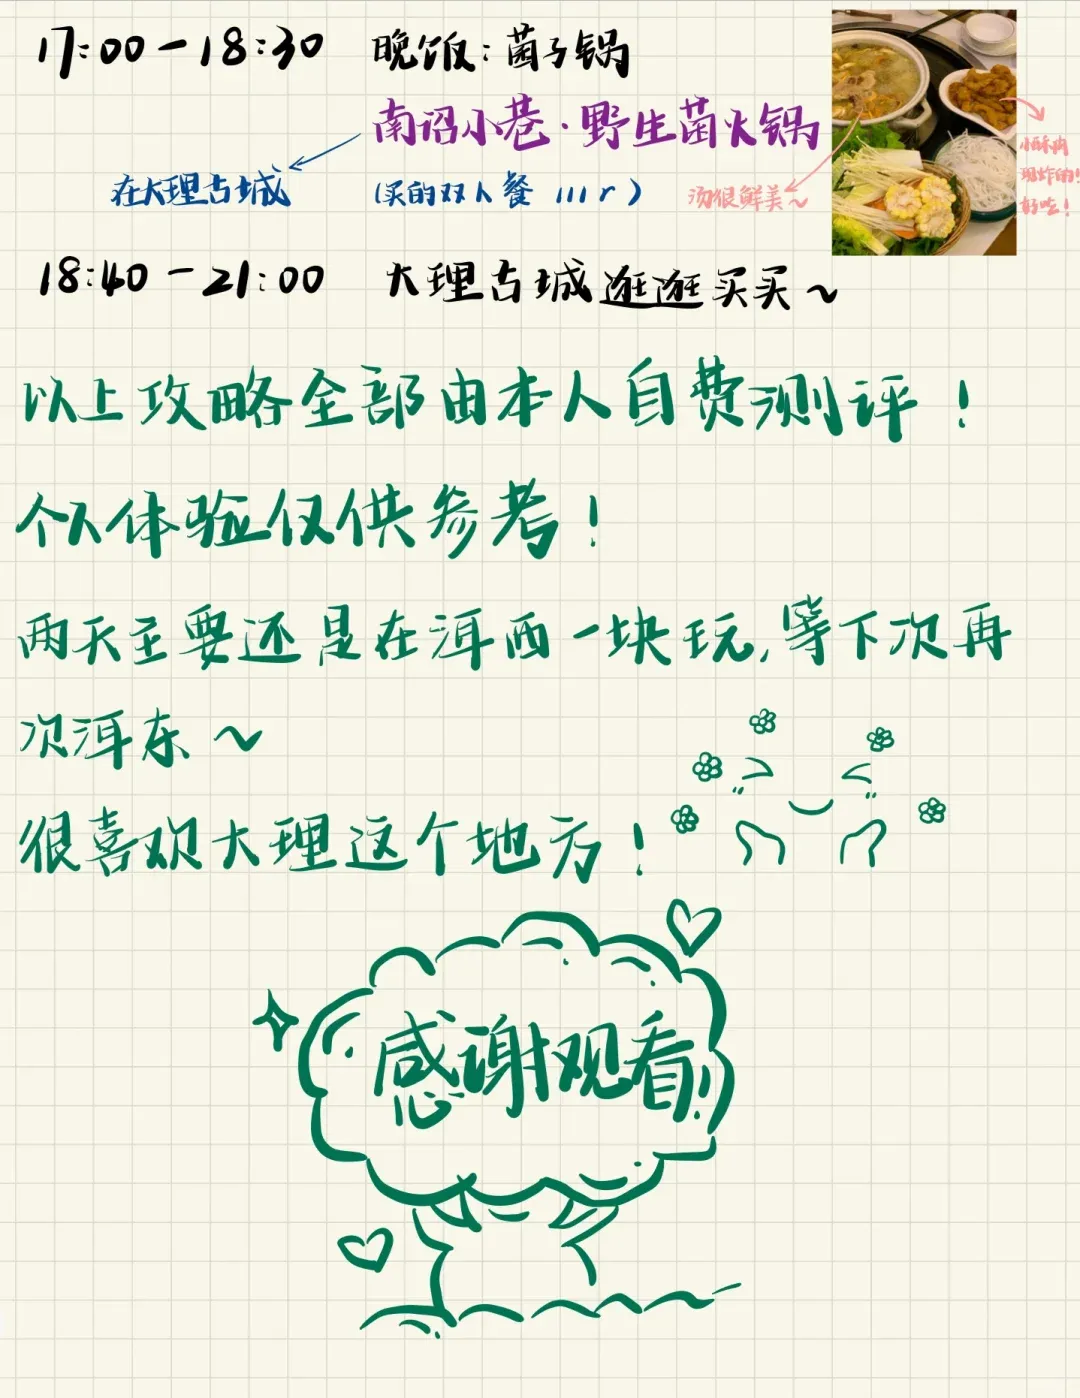 17:00-18:30 晚饭:菌子锅
南诏小巷·野生菌火锅
在大理古城
(买的双人餐 111r)
汤很鲜美~
小酥肉
现炸的!
好吃!
18:40-21:00 大理古城逛逛买买~
以上攻略全部由本人自费测评!
个人体验仅供参考!
两天主要还是在洱西一块玩,等下次再
次洱东~
很喜欢大理这个地方!
感谢观看!!